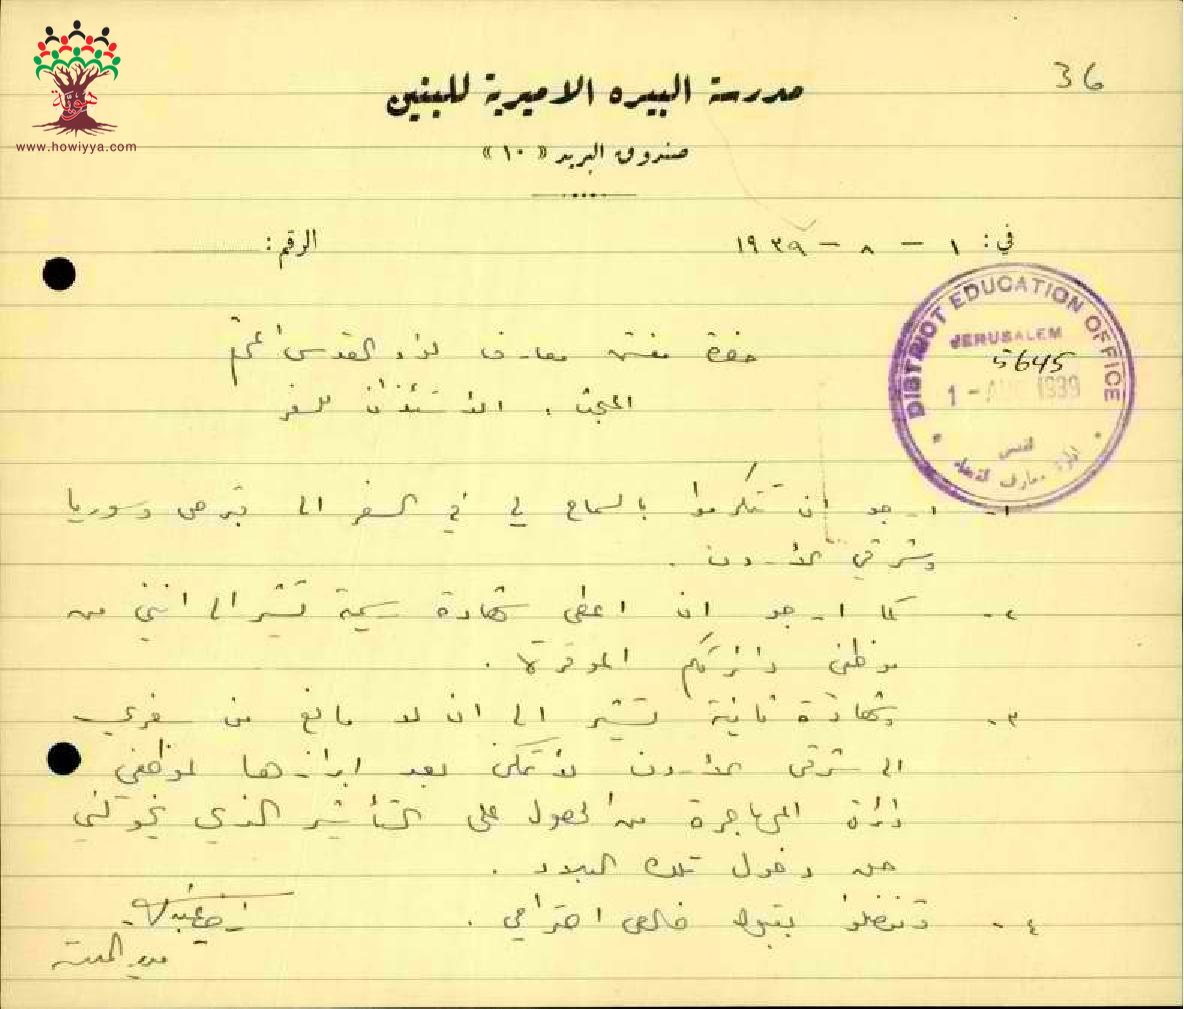 هوية
www.howiyya.com
36
مدرسة البيره الاميرية للبنين
صندوق البريد « ١٠ »
في: ١ - ٨ - ١٩٣٩
الرقم:
DISTRICT EDUCATION OFFICE
JERUSALEM
5645
1 - AUG 1939
القدس
ادارة معارف لمنطقة
حضرة مفتش معارف لواء القدس المحترم
المبحث : الاستئذان للسفر
١- ارجو ان تتكرموا بالسماح لي في السفر الى قبرص وسوريا
وشرقي الاردن .
٢- كما ارجو ان اعطى شهادة رسمية تشير الى انني من
موظفي دائرتكم الموقرة .
٣- وشهادة ثانية تشير الى ان لا مانع من سفري
الى شرقي الاردن لأتمكن بعد ابرازها لموظفي
دائرة المهاجرة من الحصول على التأشير الذي يخولني
حق دخول تلك البلاد .
٤- وتفضلوا بقبول خالص احترامي .
مدير المدرسة